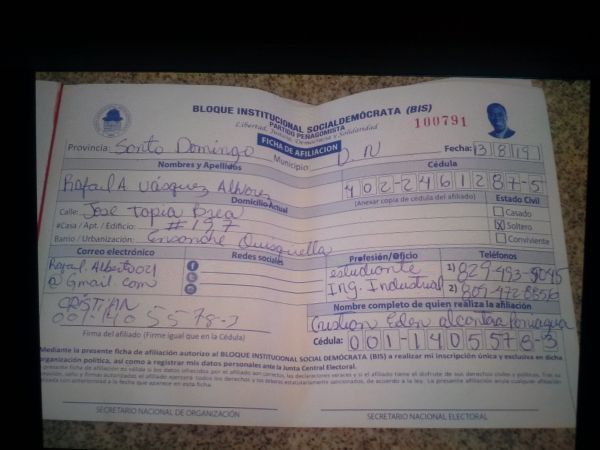 BLOQUE INSTITUCIONAL SOCIALDEMÓCRATA (BIS)
PARTIDO PEÑAGOMISTA
Libertad, Justicia, Democracia y Solidaridad
100791
FICHA DE AFILIACIÓN
Provincia: Santo Domingo Municipio D. N Fecha: 13/8/19
Nombres y Apellidos Cédula
Rafael A. Vásquez Alvarez 402-2461287-5
(Anexar copia de cédula del afiliado)
Domicilio Actual Estado Civil
Calle: Jose Tapia Brea Casado
#Casa / Apt. / Edificio: #197 Soltero
Barrio / Urbanización: Ensanche Quisquella Conviviente
Correo electrónico Redes sociales Profesión/Oficio Teléfonos
Rafael.Alberto021 estudiante 1) 829-493-9045
@Gmail.com Ing. Industrial 2) 809-472-8856
Nombre completo de quien realiza la afiliación
CRISTIAN Cristian Eden alcantara Paniagua
001-1405578-3 Cédula: 001-1405578-3
Firma del afiliado (Firme igual que en la Cédula)
Mediante la presente ficha de afiliación autorizo al BLOQUE INSTITUCIONAL SOCIALDEMÓCRATA (BIS) a realizar mi inscripción única y exclusiva en dicha
organización política, así como a registrar mis datos personales ante la Junta Central Electoral.
SECRETARIO NACIONAL DE ORGANIZACIÓN SECRETARIO NACIONAL ELECTORAL